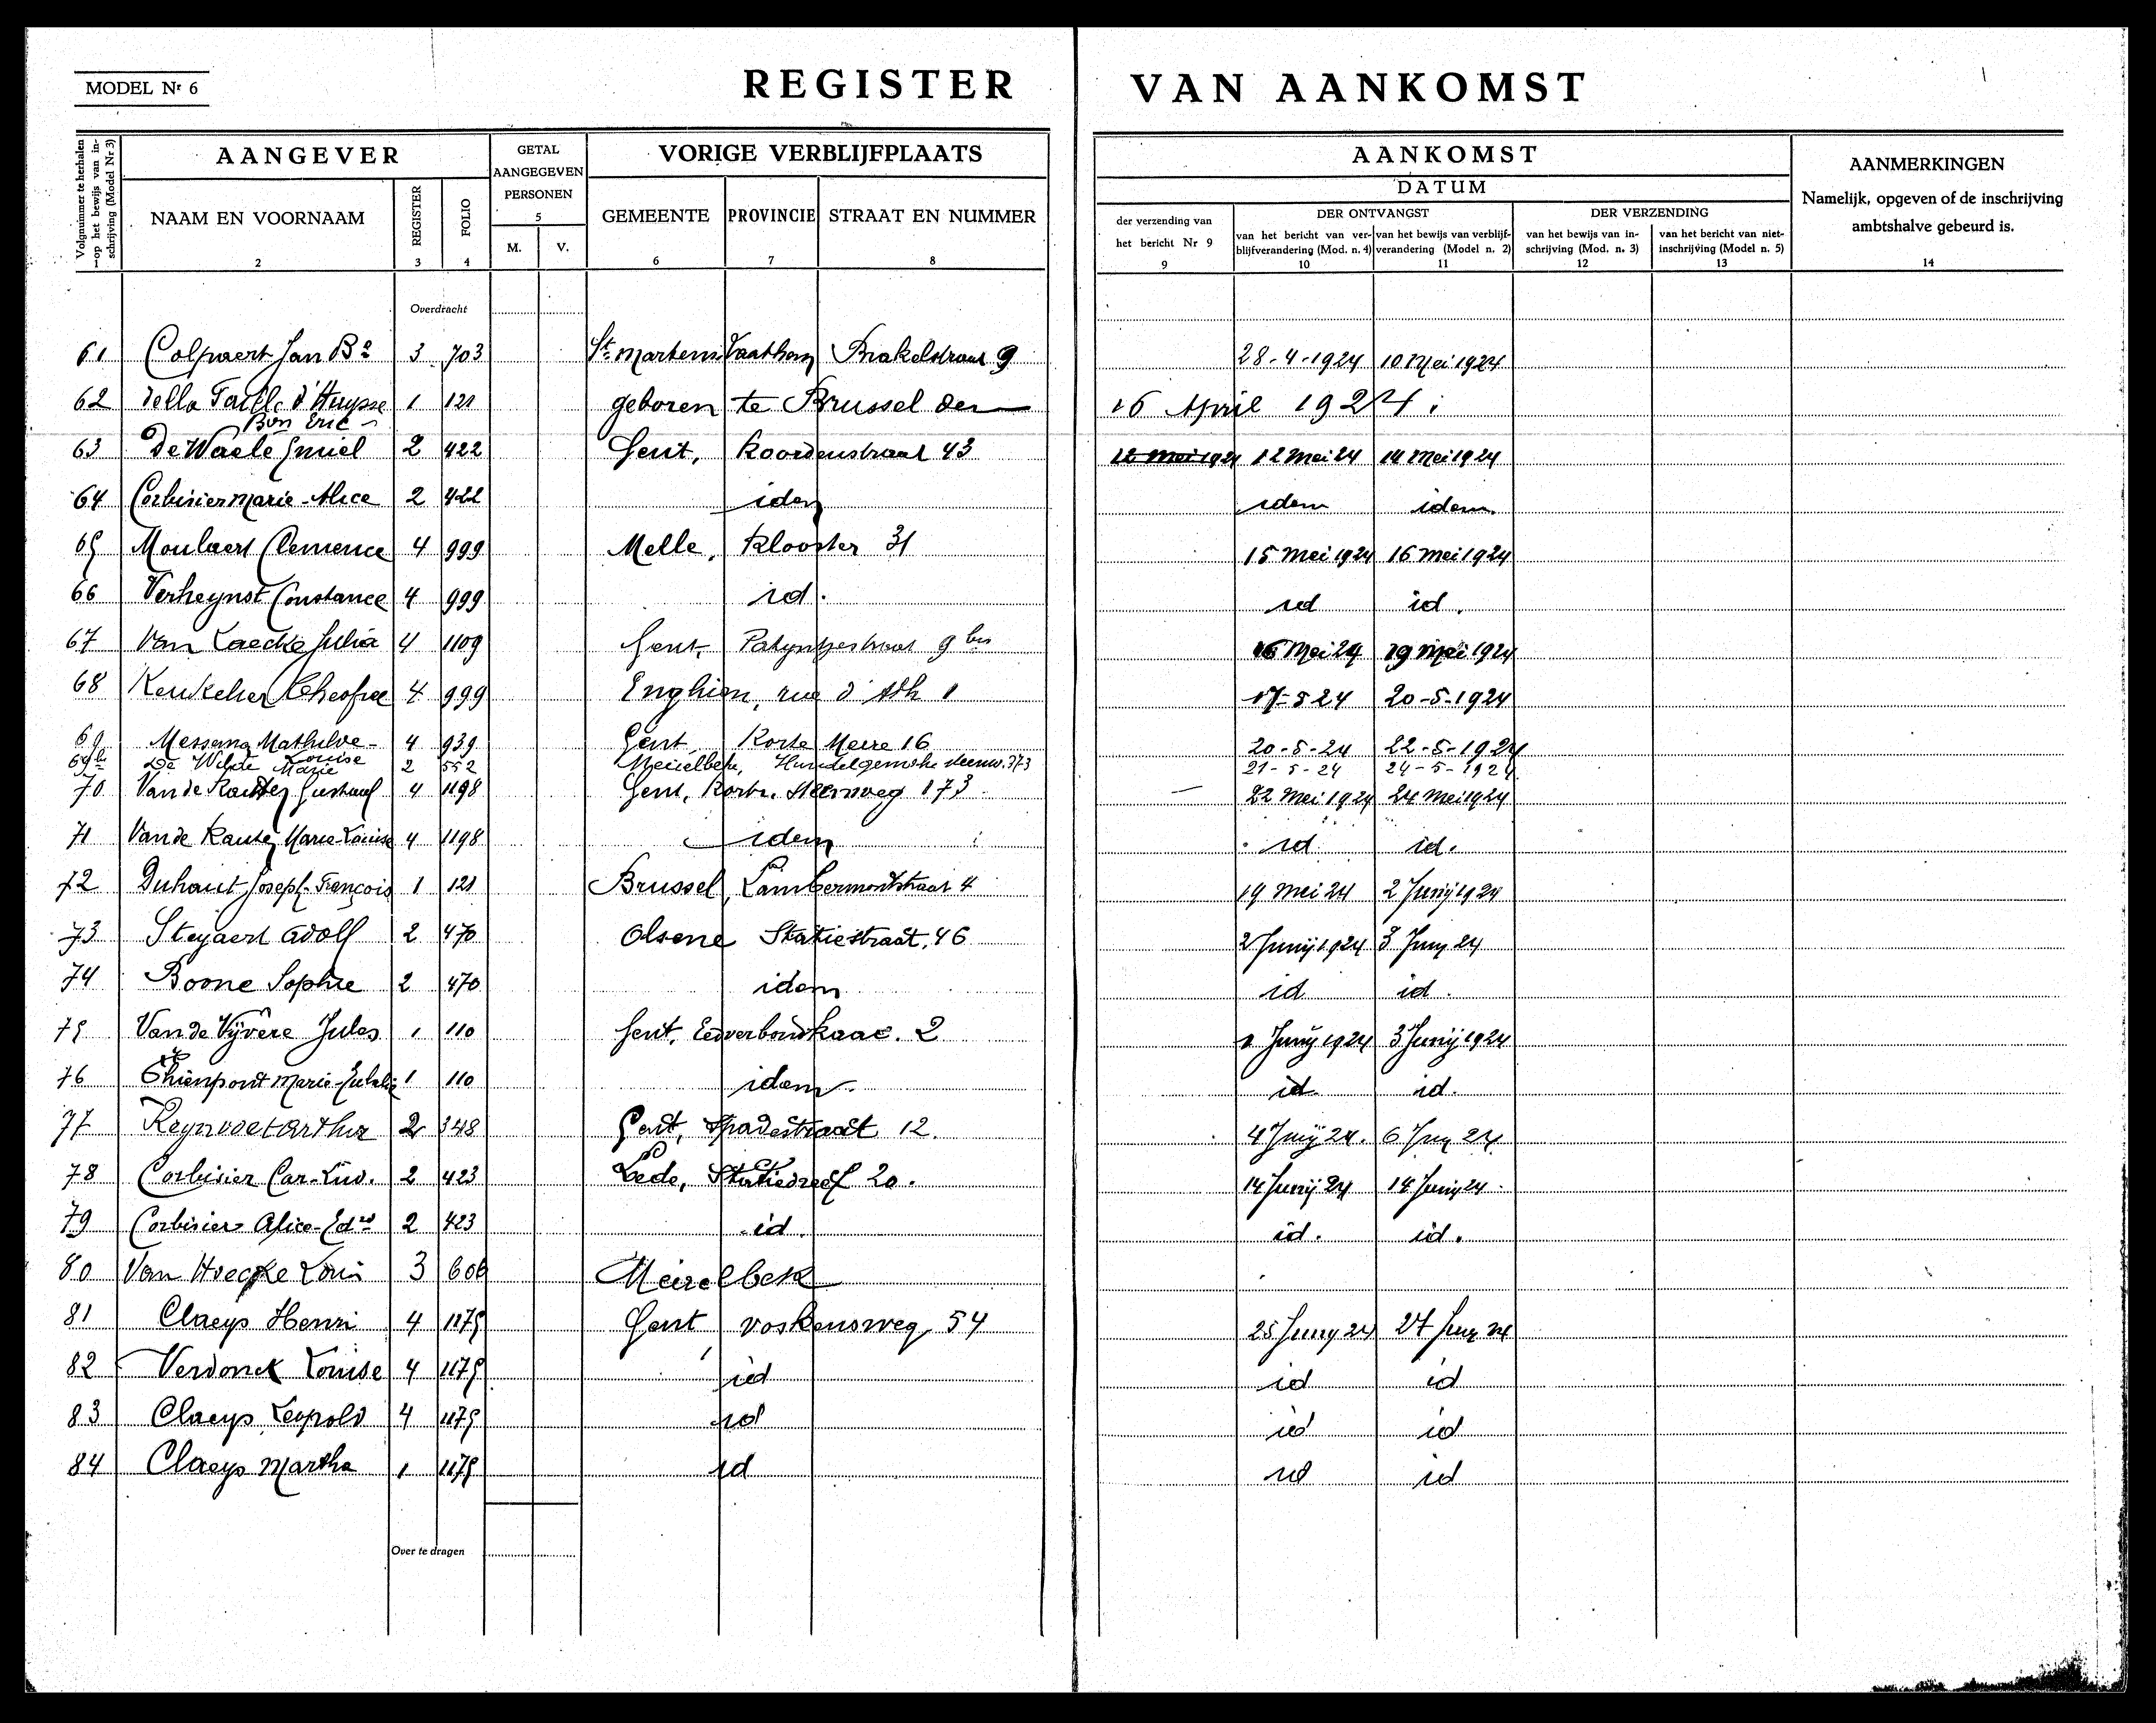 MODEL Nr 6
REGISTER VAN AANKOMST
Volgnummer te herhalen op het bewijs van inschrijving (Model Nr 3) 1
AANGEVER
NAAM EN VOORNAAM 2
REGISTER 3
FOLIO 4
GETAL AANGEGEVEN PERSONEN 5
M. V.
VORIGE VERBLIJFPLAATS
GEMEENTE 6
PROVINCIE 7
STRAAT EN NUMMER 8
AANKOMST
DATUM
der verzending van het bericht Nr 9 9
DER ONTVANGST
van het bericht van verblijfverandering (Mod. n. 4) 10
van het bewijs van verblijfverandering (Model n. 2) 11
DER VERZENDING
van het bewijs van inschrijving (Mod. n. 3) 12
van het bericht van niet-inschrijving (Model n. 5) 13
AANMERKINGEN
Namelijk, opgeven of de inschrijving ambtshalve gebeurd is.
14
Overdracht
61 Colpaert Jan Bª 3 703 St. Martens Laathem Brakelstraat 9 28-4-1924 10 Mei 1924
62 della Faille d'Huysse Bon Eric 1 121 geboren te Brussel den 16 April 1924
63 De Waele Emiel 2 422 Gent, Koordenstraat 43 12 Mei 1924 12 Mei 24 14 Mei 1924
64 Corbisier Marie-Alice 2 422 idem idem idem
65 Moulaert Clemence 4 999 Melle, Klooster 31 15 Mei 1924 16 Mei 1924
66 Verheynst Constance 4 999 id. id id.
67 Van Laecke Julia 4 1109 Gent, Patyntjestraat 9 bis 16 Mei 24 19 Mei 1924
68 4 999 Enghien, rue d'Ath 1 17-5 24 20-5-1924
69 Messens Mathilde Louise 4 939 Gent Korte Meire 16 20-5-24 22-5-1924
69 bis De Wilde Marie 2 552 Meirelbeke, Hundelgemsche steenw. 373 21-5-24 24-5-1924
70 Van de Kauter Gustaaf 4 1198 Gent, Kortr. Steenweg 173 22 Mei 1924 24 Mei 1924
71 Van de Kauter Marie-Louise 4 1198 idem id id.
72 Duhaut Joseph-François 1 121 Brussel, Lambermontstraat 4 19 Mei 24 2 Junij 1924
73 Steyaert Adolf 2 470 Olsene Statiestraat, 46 2 Junij 1924 3 Juny 24
74 Boone Sophie 2 470 idem id id.
75 Van de Vijvere Jules 1 110 Gent, Eedverbondkaai. 2 1 Junij 1924 3 Junij 1924
76 Thienpont Marie-Eulalie 1 110 idem id id.
77 Reynvoet Arthur 2 348 Gent, Spadestraat 12. 4 Junij 24. 6 Juny 24
78 Corbisier Car-Lud. 2 423 Lede, Statiedreef 20. 14 Junij 24 18 Juny 24
79 Corbisier Alice-Edrd 2 423 id. id. id.
80 Van Hoecke Louis 3 606 Meirelbeke
81 Claeys Henri 4 1175 Gent, voskensweg, 54 25 Juny 24 27 Juny 24
82 Verdonck Louise 4 1175 id id id
83 Claeys Leopold 4 1175 id id id
84 Claeys Martha 1 1175 id id id
Over te dragen